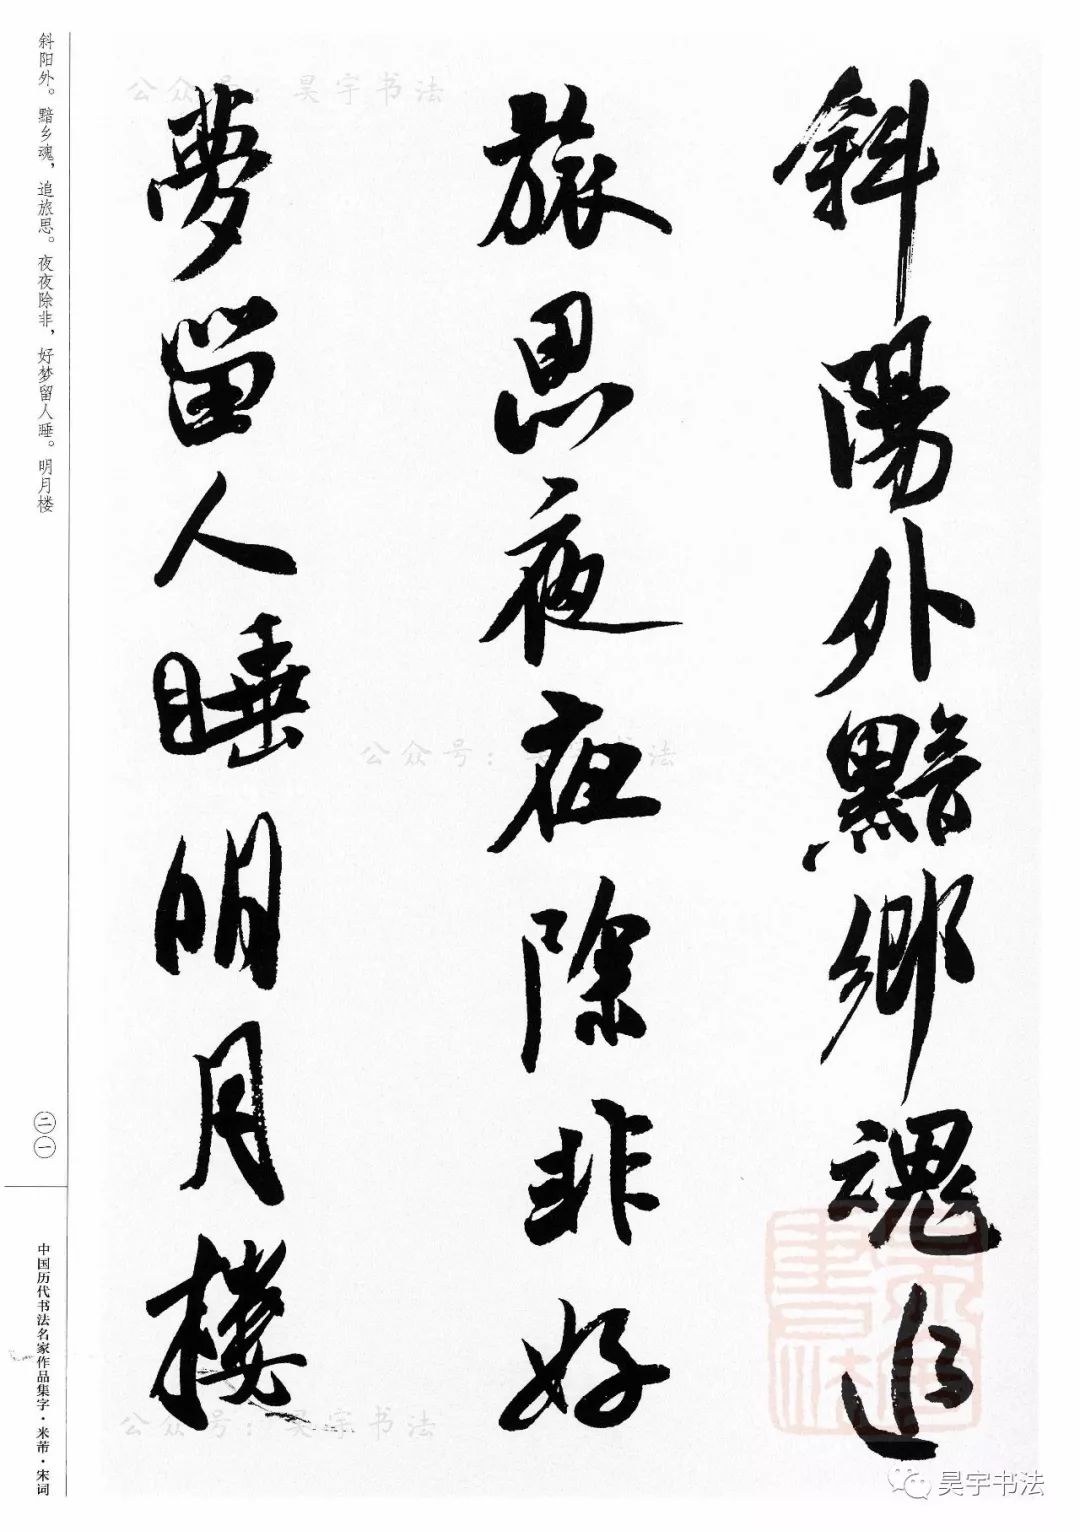 斜陽外黯鄉魂追
旅思夜夜除非好
夢留人睡明月樓
斜阳外。黯乡魂，追旅思。夜夜除非，好梦留人睡。明月楼
二一
中国历代书法名家作品集字·米芾·宋词
公众号：昊宇书法
公众号：昊宇书法
公众号：昊宇书法
昊宇书法